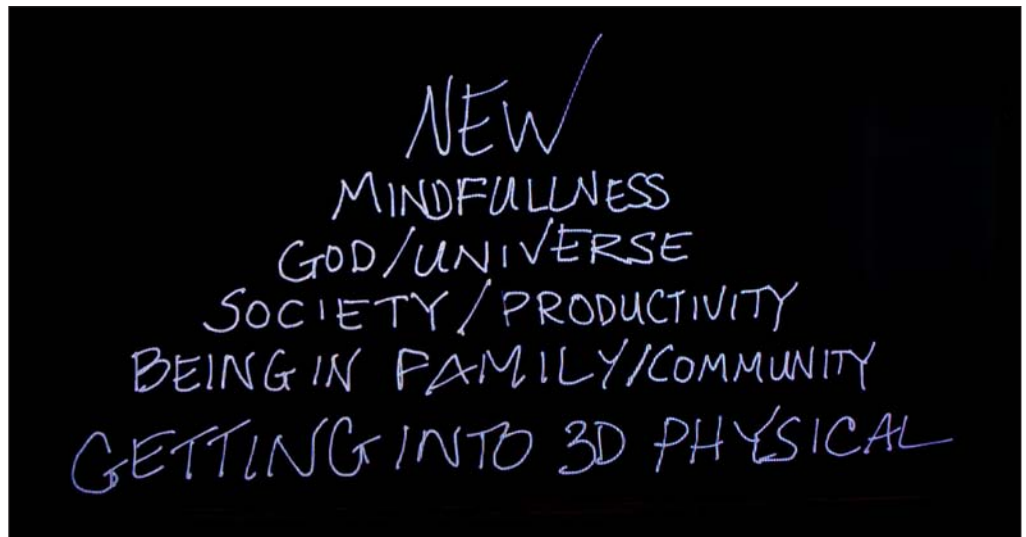 NEW
MINDFULLNESS
GOD/UNIVERSE
SOCIETY/PRODUCTIVITY
BEING IN FAMILY/COMMUNITY
GETTING INTO 3D PHYSICAL